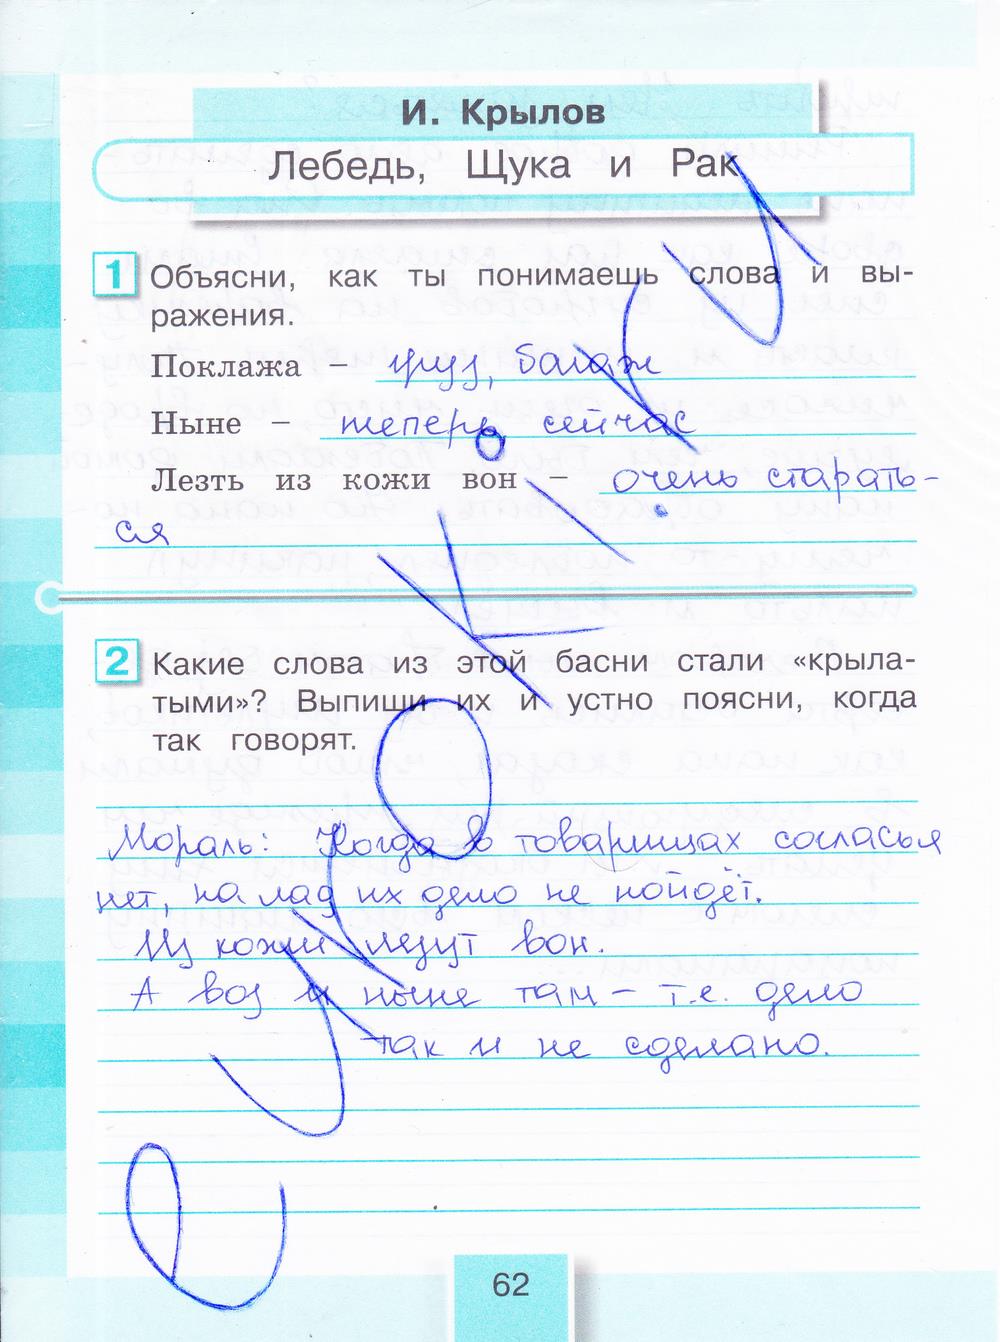 И. Крылов
Лебедь, Щука и Рак
1 Объясни, как ты понимаешь слова и вы-
ражения.
Поклажа – груз, багаж
Ныне – теперь, сейчас
Лезть из кожи вон – очень старать-
ся
2 Какие слова из этой басни стали «крыла-
тыми»? Выпиши их и устно поясни, когда
так говорят.
Мораль: Когда в товарищах согласья
нет, на лад их дело не пойдёт.
Из кожи лезут вон.
А воз и ныне там – т.е. дело
так и не сделано.
62